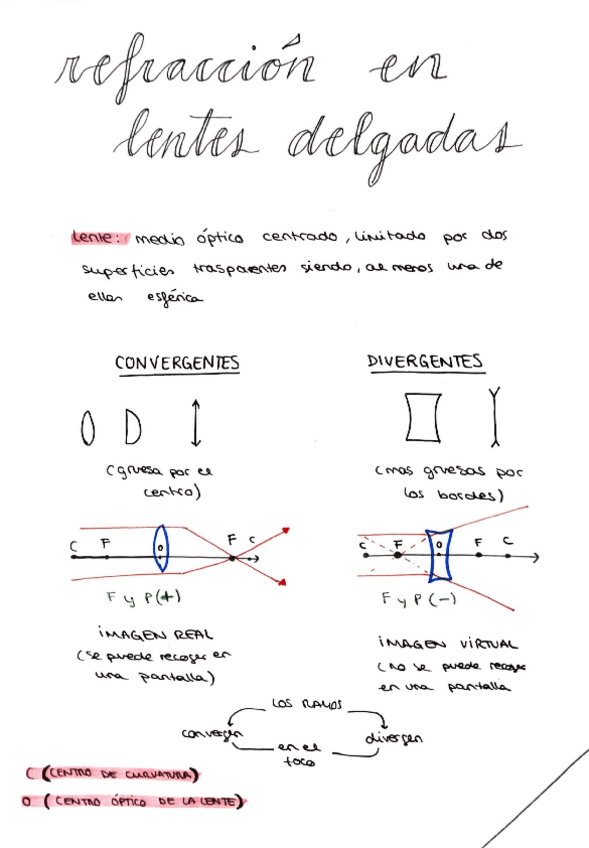 refracción en
lentes delgadas
lente: medio óptico centrado, limitado por dos
superficies trasparentes siendo, al menos una de
ellas esférica
CONVERGENTES
DIVERGENTES
(gruesa por el
centro)
(mas gruesas por
los bordes)
C F O F C
C F O F C
F y P(+)
F y P(-)
IMAGEN REAL
(se puede recoger en
una pantalla)
IMAGEN VIRTUAL
(no se puede recoger
en una pantalla
LOS RAYOS
convergen
divergen
en el
foco
C (CENTRO DE CURVATURA)
O (CENTRO ÓPTICO DE LA LENTE)